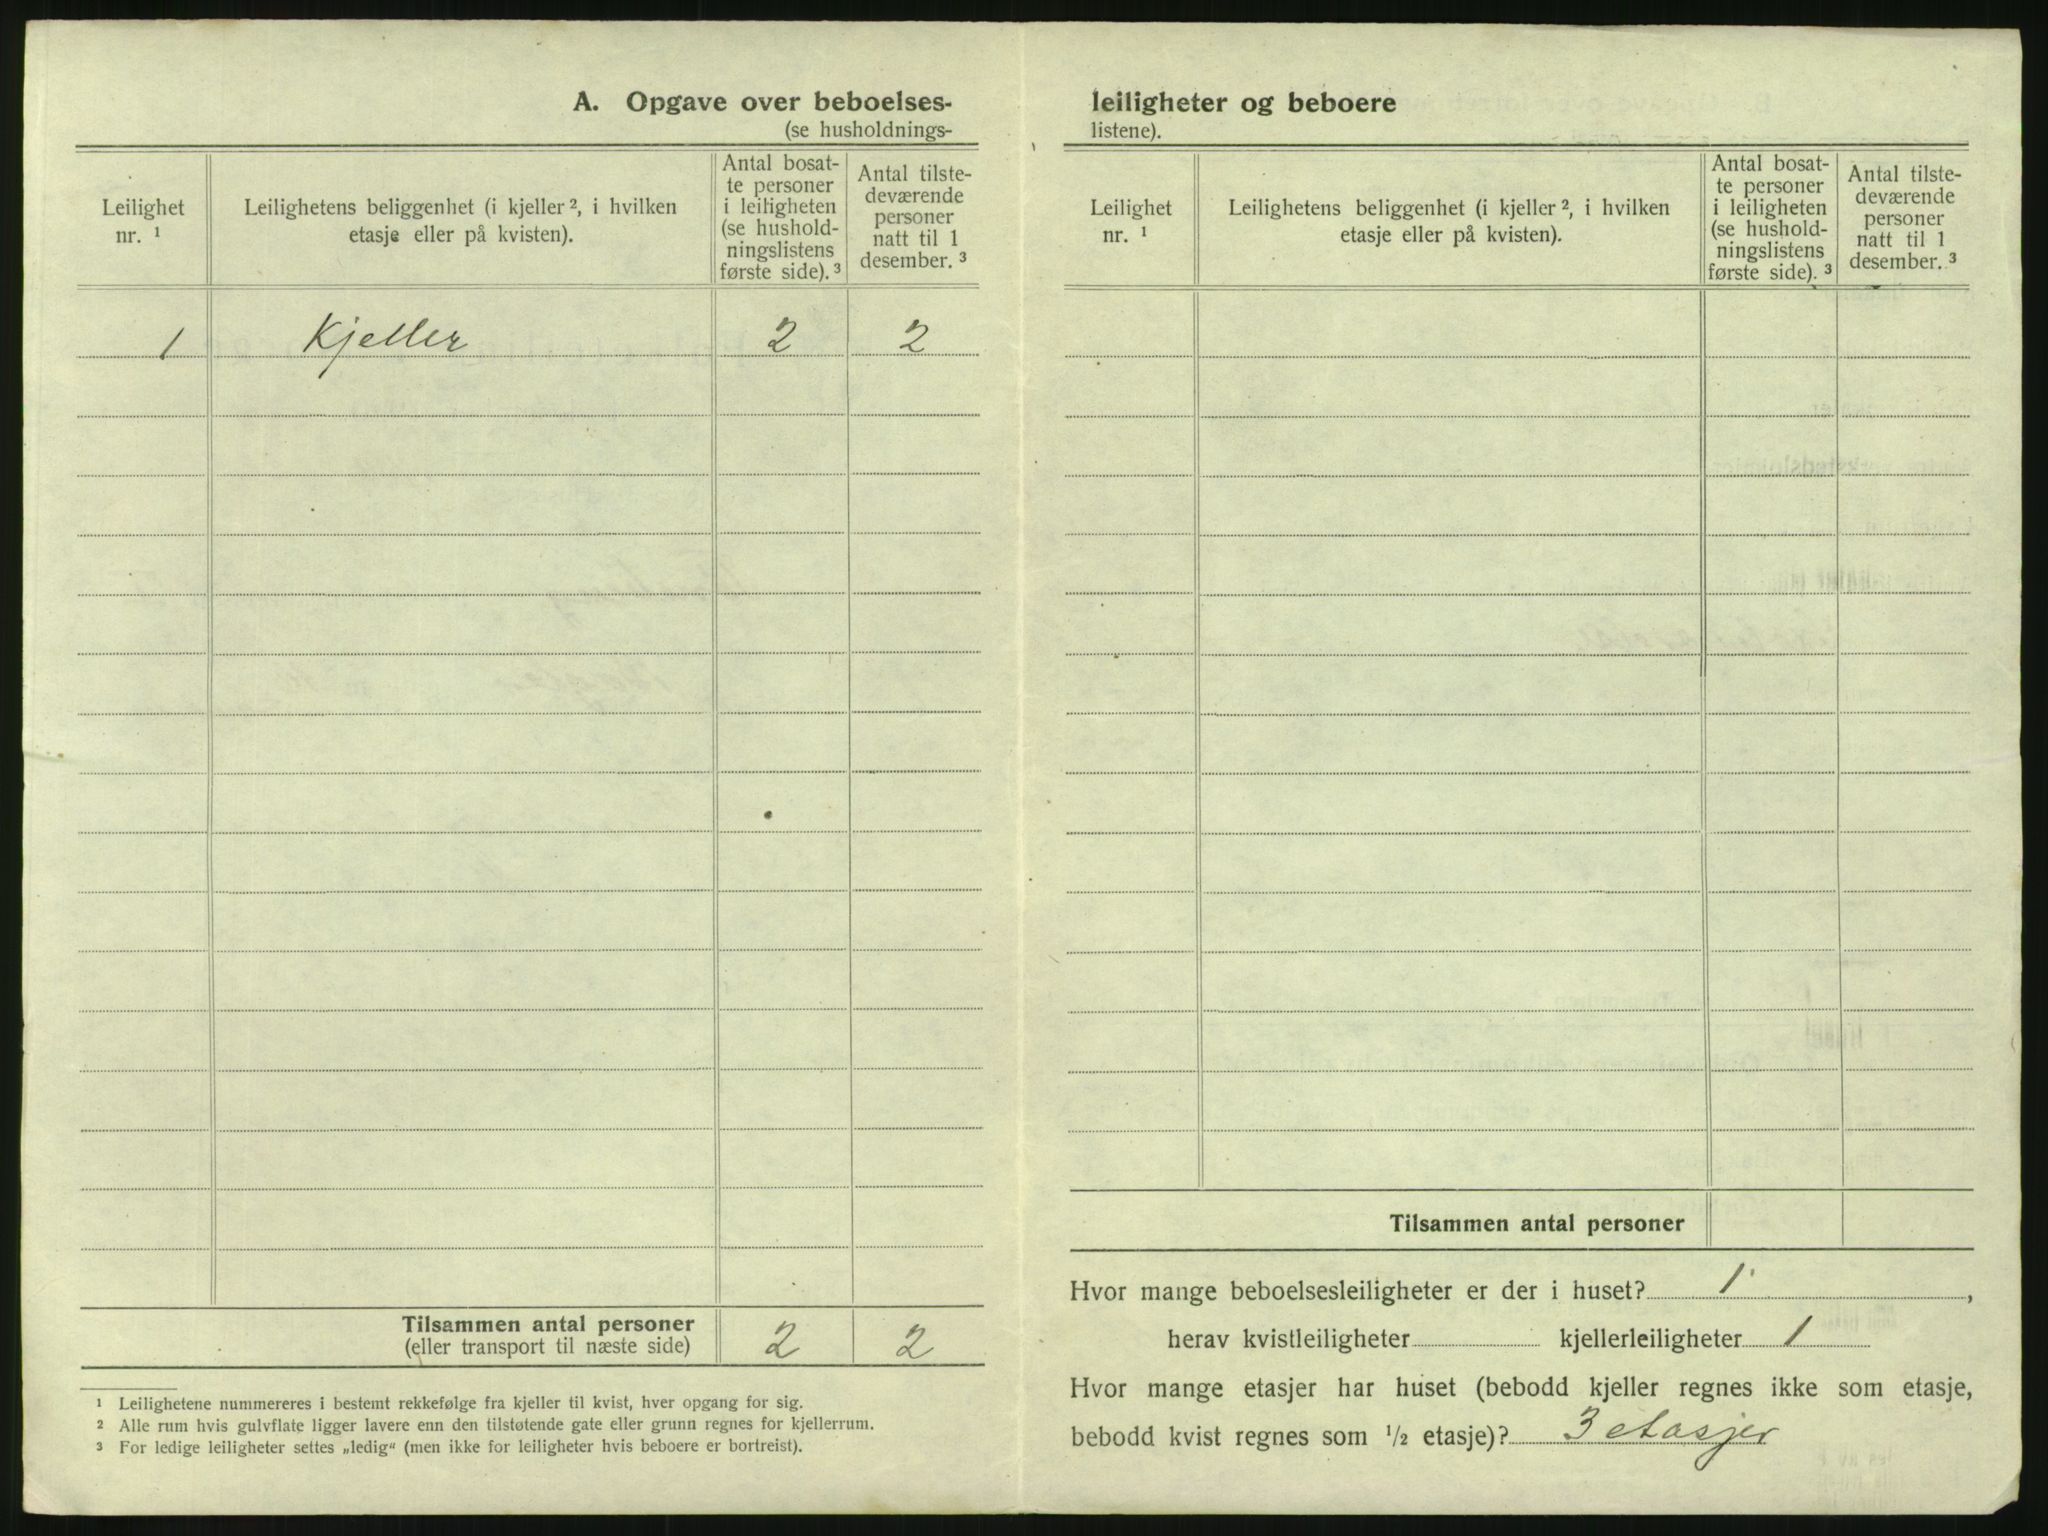 A. Opgave over beboelses-
(se husholdnings-
Leilighet
nr. ¹
Leilighetens beliggenhet (i kjeller ², i hvilken
etasje eller på kvisten).
Antal bosat-
te personer
i leiligheten
(se hushold-
ningslistens
første side). ³
Antal tilste-
deværende
personer
natt til 1
desember. ³
1 Kjeller 2 2
Tilsammen antal personer
(eller transport til næste side) 2 2
¹ Leilighetene nummereres i bestemt rekkefølge fra kjeller til kvist, hver opgang for sig.
² Alle rum hvis gulvflate ligger lavere enn den tilstøtende gate eller grunn regnes for kjellerrum.
³ For ledige leiligheter settes „ledig“ (men ikke for leiligheter hvis beboere er bortreist).
leiligheter og beboere
listene).
Leilighet
nr. ¹
Leilighetens beliggenhet (i kjeller ², i hvilken
etasje eller på kvisten).
Antal bosat-
te personer
i leiligheten
(se hushold-
ningslistens
første side). ³
Antal tilste-
deværende
personer
natt til 1
desember. ³
Tilsammen antal personer
Hvor mange beboelsesleiligheter er der i huset? 1 ,
herav kvistleiligheter kjellerleiligheter 1
Hvor mange etasjer har huset (bebodd kjeller regnes ikke som etasje,
bebodd kvist regnes som ½ etasje)? 3 etasjer